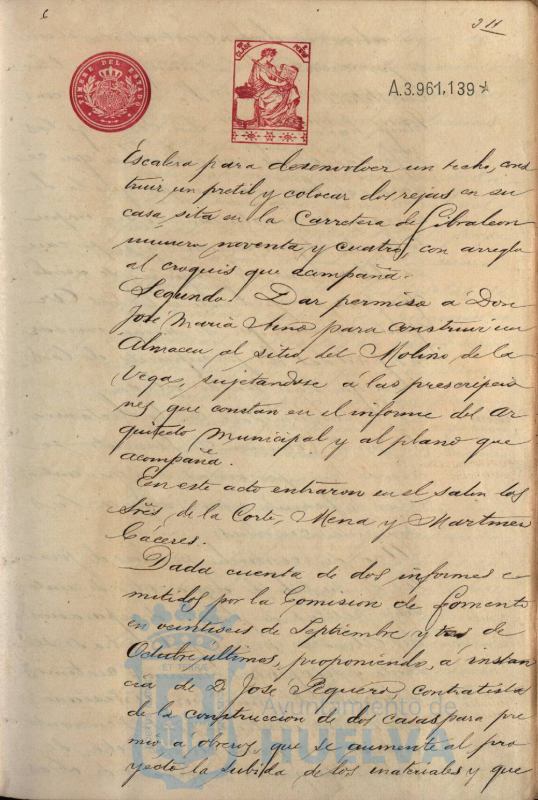 311
TIMBRE DEL ESTADO
A.3.961,139
Escalera para desenvolver un techo, cons
truir un pretil y colocar dos rejas en su
casa sita en la Carretera de Gibraleon
número noventa y cuatro, con arreglo
al croquis que acompaña.
Segundo. Dar permiso á Don
José Maria para construir un
Almacen al sitio del Molino de la
Vega, sujetandose á las prescripcio
nes que constan en el informe del Ar
quitecto Municipal y al plano que
acompaña.
En este acto entraron en el salon los
Sres. de la Corte, Mena y Martinez
Cáceres.
Dada cuenta de dos informes e
mitidos por la Comision de Fomento
en veintiseis de Septiembre y tres de
Octubre últimos, proponiendo, á instan
cia de D. José Peguero, contratista
de la construccion de dos casas para pre
mio a obreros, que se aumente al pro
yecto la subida de los materiales y que
Ayuntamiento de
HUELVA